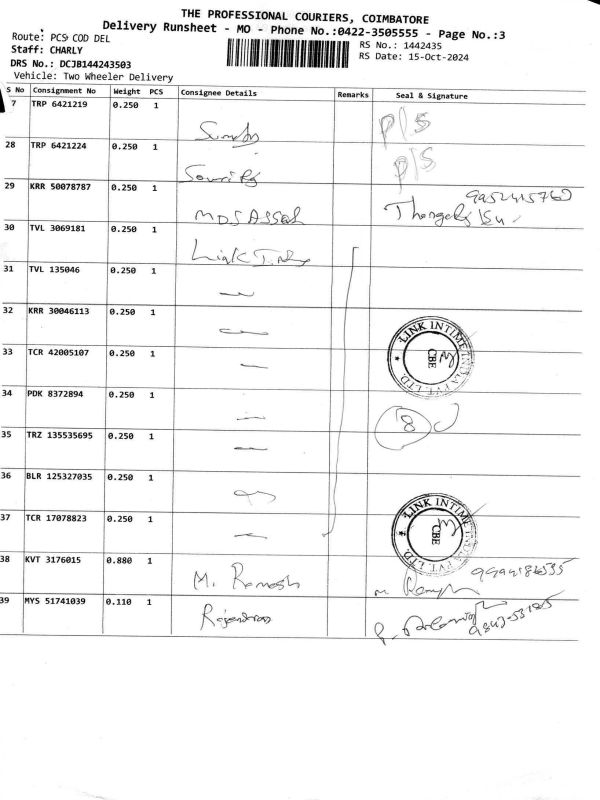 THE PROFESSIONAL COURIERS, COIMBATORE
Delivery Runsheet - MO - Phone No.:0422-3505555 - Page No.:3
Route: PCS COD DEL
RS No.: 1442435
Staff: CHARLY
RS Date: 15-Oct-2024
DRS No.: DCJB144243503
Vehicle: Two Wheeler Delivery
S No Consignment No Weight PCS Consignee Details Remarks Seal & Signature
7 TRP 6421219 0.250 1
P/S
28 TRP 6421224 0.250 1
P/S
29 KRR 50078787 0.250 1
30 TVL 3069181 0.250 1
31 TVL 135046 0.250 1
32 KRR 30046113 0.250 1
LINK INTIME INDIA PVT. LTD. * CBE
33 TCR 42005107 0.250 1
34 PDK 8372894 0.250 1
8
35 TRZ 135535695 0.250 1
36 BLR 125327035 0.250 1
37 TCR 17078823 0.250 1
LINK INTIME INDIA PVT. LTD. * CBE
38 KVT 3176015 0.880 1
M. Ramesh
39 MYS 51741039 0.110 1
Rajendran